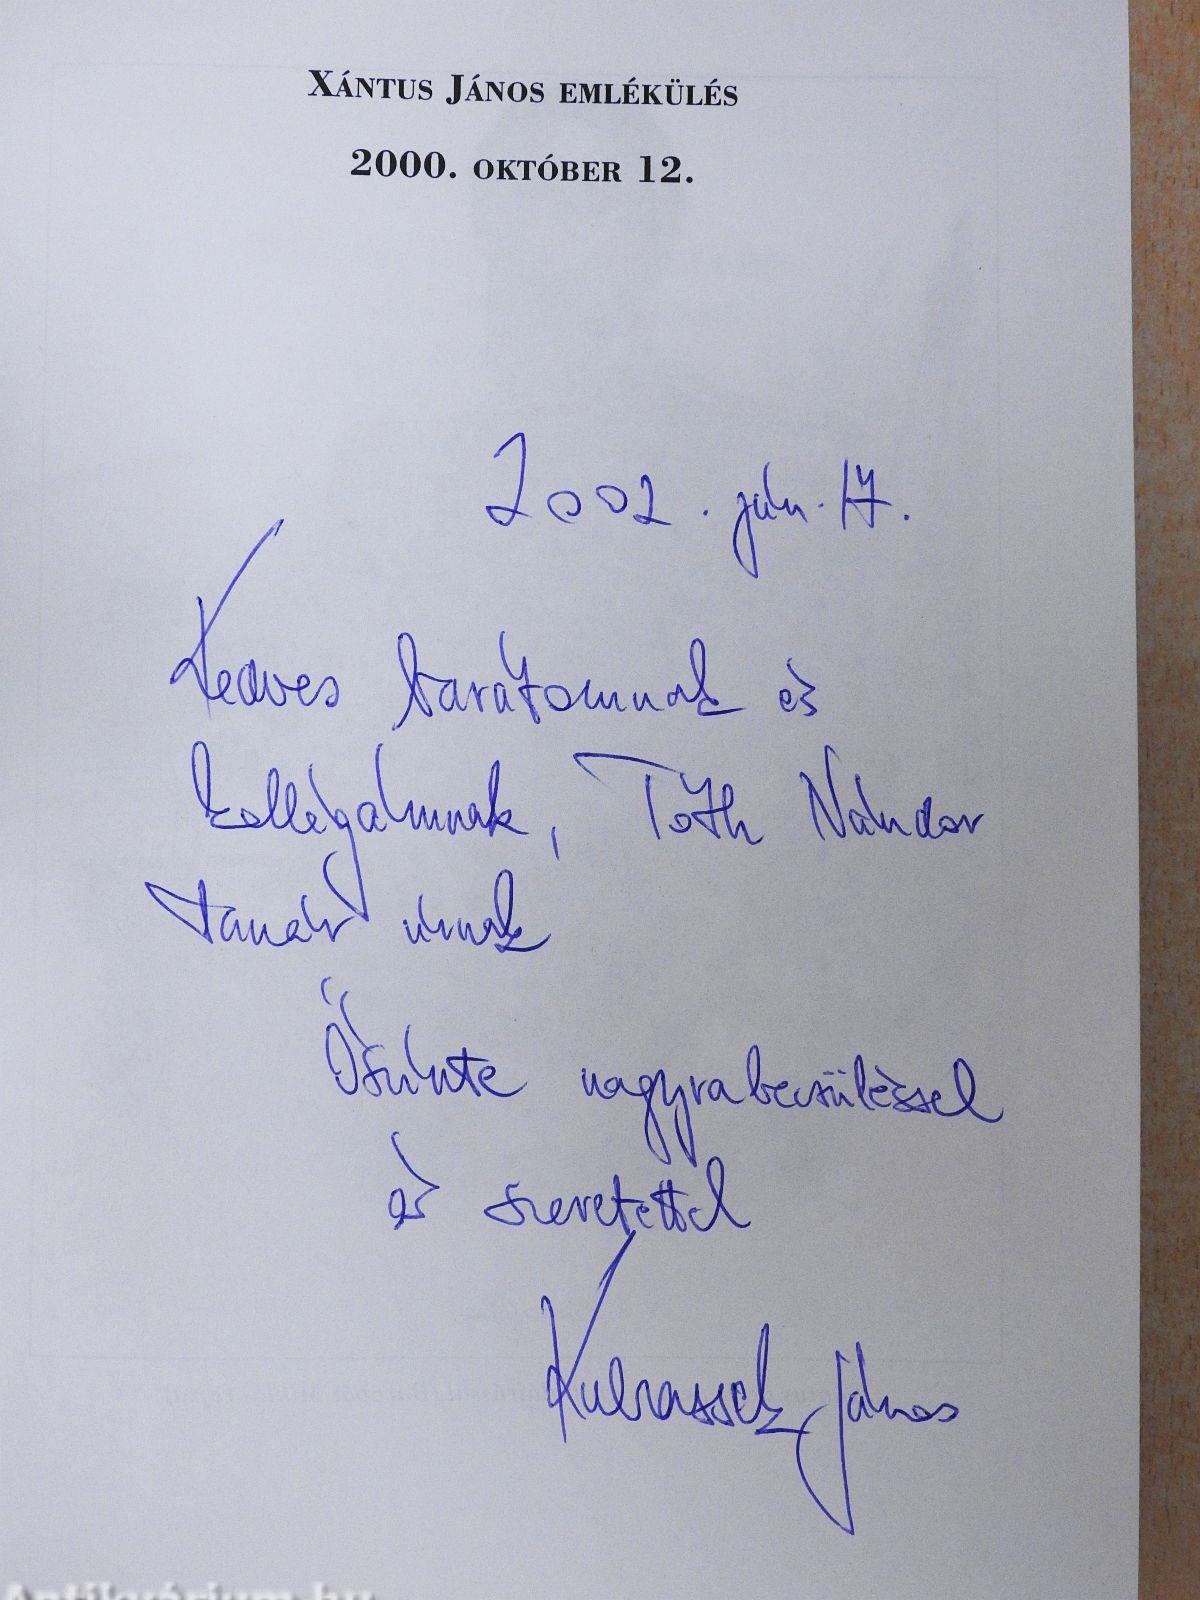 XÁNTUS JÁNOS EMLÉKÜLÉS
2000. OKTÓBER 12.
2002. jún. 17.
Kedves barátomnak és
kollégámnak, Tóth Nándor
tanár úrnak
Őszinte nagyrabecsüléssel
és szeretettel
Kubassek János
Antikvárium.hu